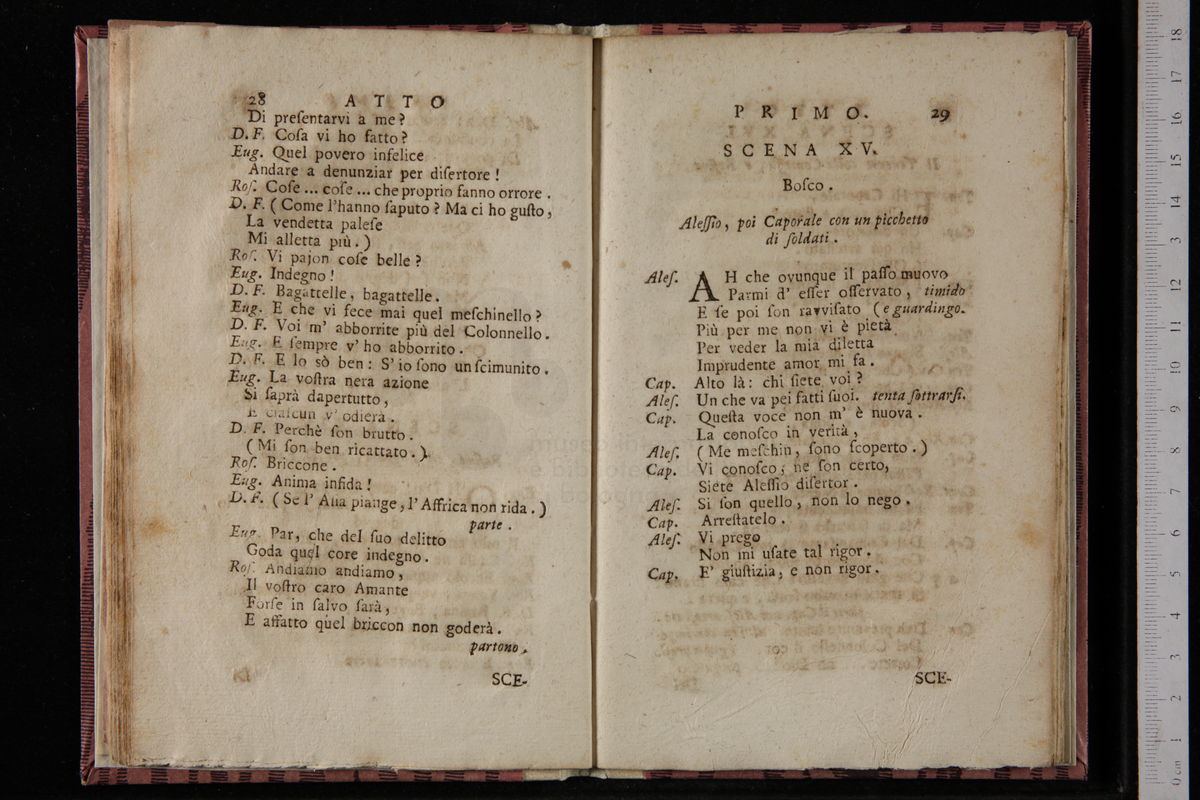 28 ATTO
Di preſentarvi a me?
D. F. Coſa vi ho fatto?
Eug. Quel povero infelice
Andare a denunziar per diſertore!
Roſ. Coſe ... coſe ... che proprio fanno orrore.
D. F. ( Come l'hanno ſaputo? Ma ci ho guſto,
La vendetta paleſe
Mi alletta più.)
Roſ. Vi pajon coſe belle?
Eug. Indegno!
D. F. Bagattelle, bagattelle.
Eug. E che vi fece mai quel meſchinello?
D. F. Voi m' abborrite più del Colonnello.
Eug. E ſempre v' ho abborrito.
D. F. E lo sò ben: S' io ſono un ſcimunito.
Eug. La voſtra nera azione
Si ſaprà dapertutto,
E ciaſcun v' odierà.
D. F. Perchè ſon brutto.
(Mi ſon ben ricattato.)
Roſ. Briccone.
Eug. Anima infida!
D. F. (Se l' Aſia piange, l' Affrica non rida.)
parte.
Eug. Par, che del ſuo delitto
Goda quel core indegno.
Roſ. Andiamo andiamo,
Il voſtro caro Amante
Forſe in ſalvo ſarà,
E affatto quel briccon non goderà.
partono.
SCE-
PRIMO. 29
SCENA XV.
Boſco.
Aleſſio, poi Caporale con un picchetto
di ſoldati.
Aleſ. AH che ovunque il paſſo muovo
Parmi d' eſſer oſſervato, timido
E ſe poi ſon ravviſato (e guardingo.
Più per me non vi è pietà
Per veder la mia diletta
Imprudente amor mi fa.
Cap. Alto là: chi ſiete voi?
Aleſ. Un che va pei fatti ſuoi. tenta ſottrarſi.
Cap. Queſta voce non m' è nuova.
La conoſco in verità,
Aleſ. (Me meſchin, ſono ſcoperto.)
Cap. Vi conoſco; ne ſon certo,
Siete Aleſſio diſertor.
Aleſ. Si ſon quello, non lo nego.
Cap. Arreſtatelo.
Aleſ. Vi prego
Non mi uſate tal rigor.
Cap. E' giuſtizia, e non rigor.
SCE-
0 cm 1 2 3 4 5 6 7 8 9 10 11 12 13 14 15 16 17 18